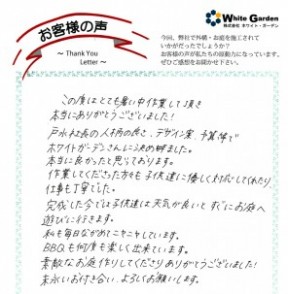 お客様の声
～ Thank You
Letter ～
White Garden
株式会社 ホワイト・ガーデン
今回、弊社で外構・お庭を施工されて
いかがだったでしょうか?
お客様の声が私たちの原動力になっています。
ぜひご感想をお聞かせ下さい。
この度はとても暑い中作業して頂き
本当にありがとうございました!
戸水社長の人柄の良さ、デザイン案、予算等で
ホワイトガーデンさんに決め頼ました。
本当に良かったと思っております。
作業してくださった方々も子供達に優しく対応してくれたり
仕事も丁寧でした。
完成した今では子供達は天気が良いと すぐにお庭へ
遊びに行きます。
私も毎日ながめてニコニコしています。
BBQも何度も楽しく出来ています。
素敵なお庭作りしてくださりありがとうございました!
末永いお付き合い、よろしくお願いします。